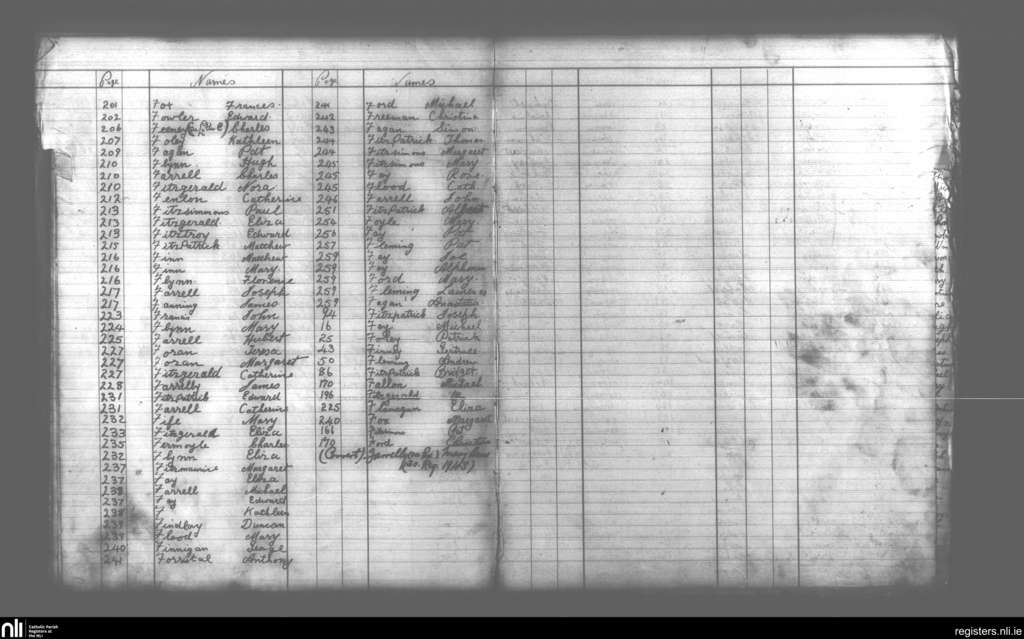 Page Names Page Names
201 Fox Frances
202 Fowler Edward
206 Feeney Charles
207 Foley Kathleen
209 Fagan Pat
210 Flynn Hugh
210 Farrell Charles
210 Fitzgerald Nora
212 Fenlon Catherine
213 Fitzsimmons Paul
213 Fitzgerald Eliza
213 Fitzroy Edward
215 FitzPatrick Matthew
216 Finn Matthew
216 Finn Mary
216 Flynn Florence
217 Farrell Joseph
217 Fanning James
223 Francis John
224 Flynn Mary
225 Farrell Hubert
227 Foran Teresa
227 Foran Margaret
227 Fitzgerald Catherine
228 Farrelly James
231 FitzPatrick Edward
231 Farrell Catherine
232 Fife Mary
233 Fitzgerald Eliza
235 Fermoyle Charles
232 Flynn Eliza
237 Fitzmaurice Margaret
237 Fay Eliza
238 Farrell Michael
237 Fay Edward
238 F Kathleen
239 Findlay Duncan
239 Flood Mary
240 Finnigan George
241 Forrestal Anthony
241 Ford Michael
242 Freeman Christina
243 Fagan Simon
244 FitzPatrick Thomas
244 Fitzsimons Margaret
245 Fitzsimons Mary
245 Fay Rose
245 Flood Cath
246 Farrell John
251 FitzPatrick Albert
254 Foyle Mary
256 Fay Pat
257 Fleming Pat
259 Fay Joe
259 Fay Alphonsus
259 Ford Mary
259 Fleming Laurence
259 Fagan Anastatia
94 Fitzpatrick Joseph
16 Fay Michael
25 Foley Patrick
43 Finlay Gertrude
50 Fleming Andrew
86 FitzPatrick Bridget
170 Fallon Michael
196 Fitzgerald
225 Flanagan Eliza
240 Fox Margaret
166
170 Ford Christina
(Convert) Farrell Mary
nli Catholic Parish
Registers at
the NLI
registers.nli.ie